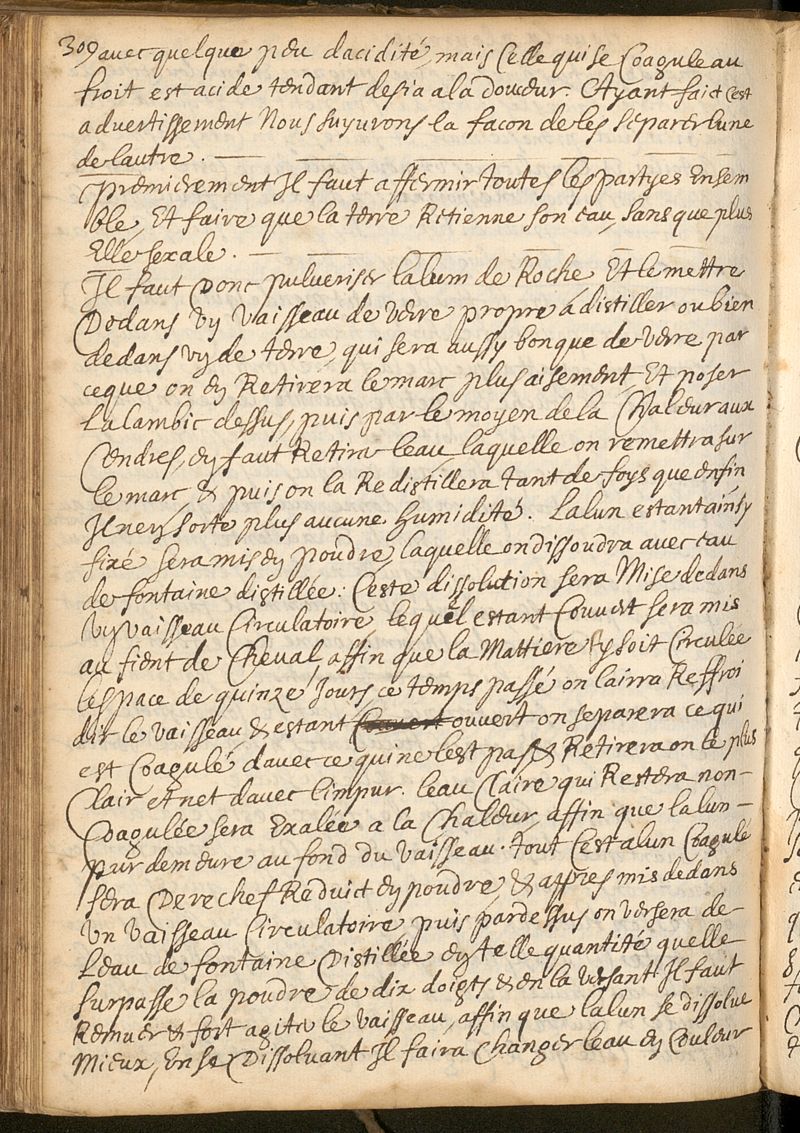 309 avec quelque peu dacidité, mais Celle qui se Coagule au
froit est acide tendant desia a la douceur. Ayant faict Cest
advertissement Nous suyurons la facon de les separer lune
de lautre.
Premierement Il faut affermir toutes les partyes Ensem
ble, Et faire que la terre Retienne son eau, sans que plus
Elle sexale.
Il faut Donc pulueriser lalum de Roche Et le mettre
Dedans vy vaisseau de verre propre a distiller ou bien
dedans vy de terre, qui sera aussy bon que de verre par
ceque on ey Retirera le marc plus aisement, Et poser
Lalambic dessus, puis par le moyen de la Chaleur aux
Cendres, ey faut Retirer leau, laquelle on remettra sur
le marc, & puis on la Redistillera tant de foys que enfin
Il ney sorte plus aucune humidité. Lalun estant ainsy
fixé sera mis ey poudre, laquelle on dissoudra avec eau
de fontaine distillée: Ceste dissolution sera Mise dedans
vy vaisseau Circulatoire lequel estant Couuert sera mis
au fient de Cheval, affin que la Mattiere sy soit Circulée
lespace de quinze Jours ce temps passé on lairra Reffroi
dir le vaisseau, & estant Couuert ouuert on separera ce qui
est Coagulé, davec ce qui ne lest pas & Retirera on le plus
Clair et net davec limpur. leau Claire qui Restera non-
Coagulée sera Exalée a la Chaleur, affin que lalun-
pur demeure au fond du vaisseau. tout Cest alun Coagulé
sera Derechef Reduict ey poudre, & apres mis dedans
vn vaisseau Circulatoire puis par dessus on versera de-
Leau de fontaine Distillée ey telle quantité quelle
surpasse la poudre de dix doigts & en la versant Il faut
Remuer & fort agiter le vaisseau, affin que lalun se dissolve
Mieux, En se Dissoluant Il faira Changer leau ey Couleur